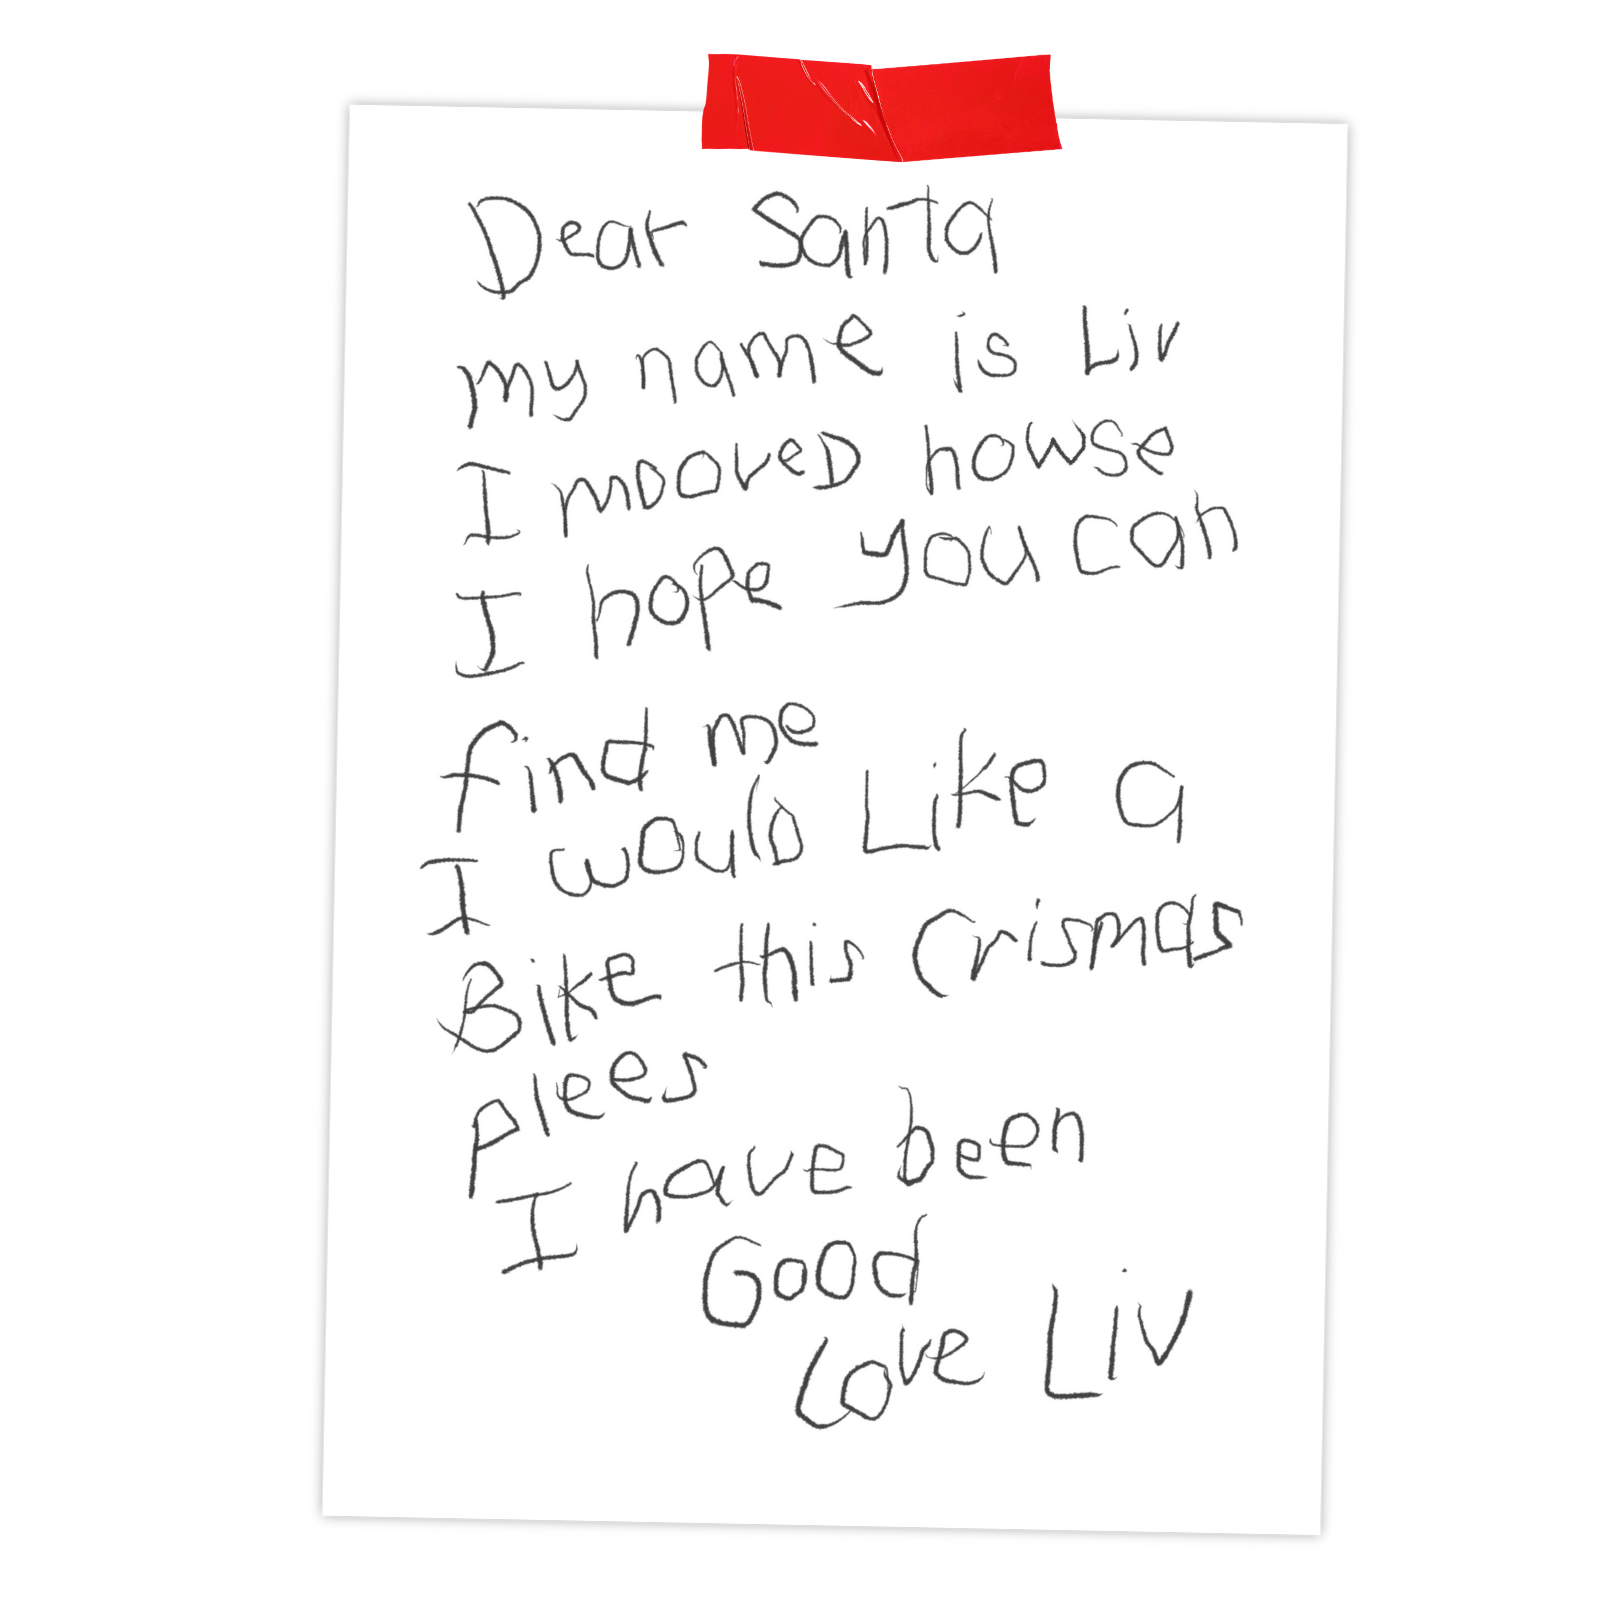 Dear Santa
my name is Liv
I mooved howse
I hope you can
find me
I would Like a
Bike this Crismas
plees
I have been
Good
Love Liv